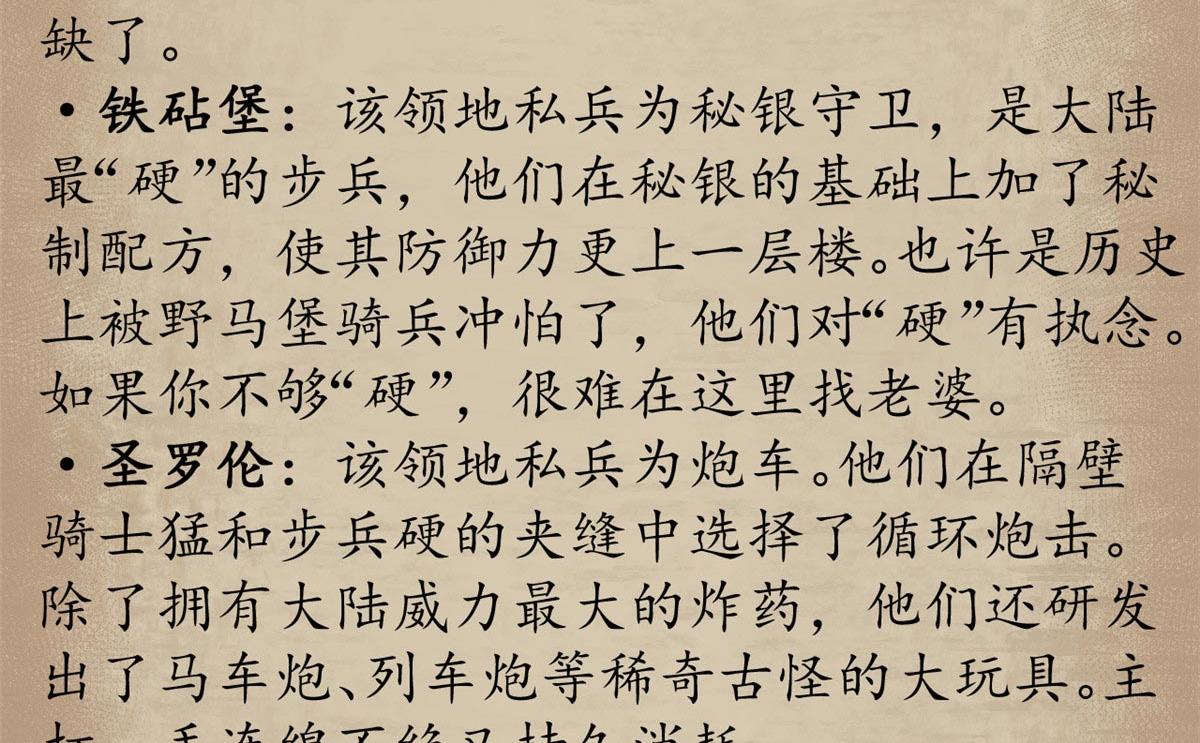 缺了。
·铁砧堡：该领地私兵为秘银守卫，是大陆
最“硬”的步兵，他们在秘银的基础上加了秘
制配方，使其防御力更上一层楼。也许是历史
上被野马堡骑兵冲怕了，他们对“硬”有执念。
如果你不够“硬”，很难在这里找老婆。
·圣罗伦：该领地私兵为炮车。他们在隔壁
骑士猛和步兵硬的夹缝中选择了循环炮击。
除了拥有大陆威力最大的炸药，他们还研发
出了马车炮、列车炮等稀奇古怪的大玩具。主
打一手连绵不绝又持久消耗